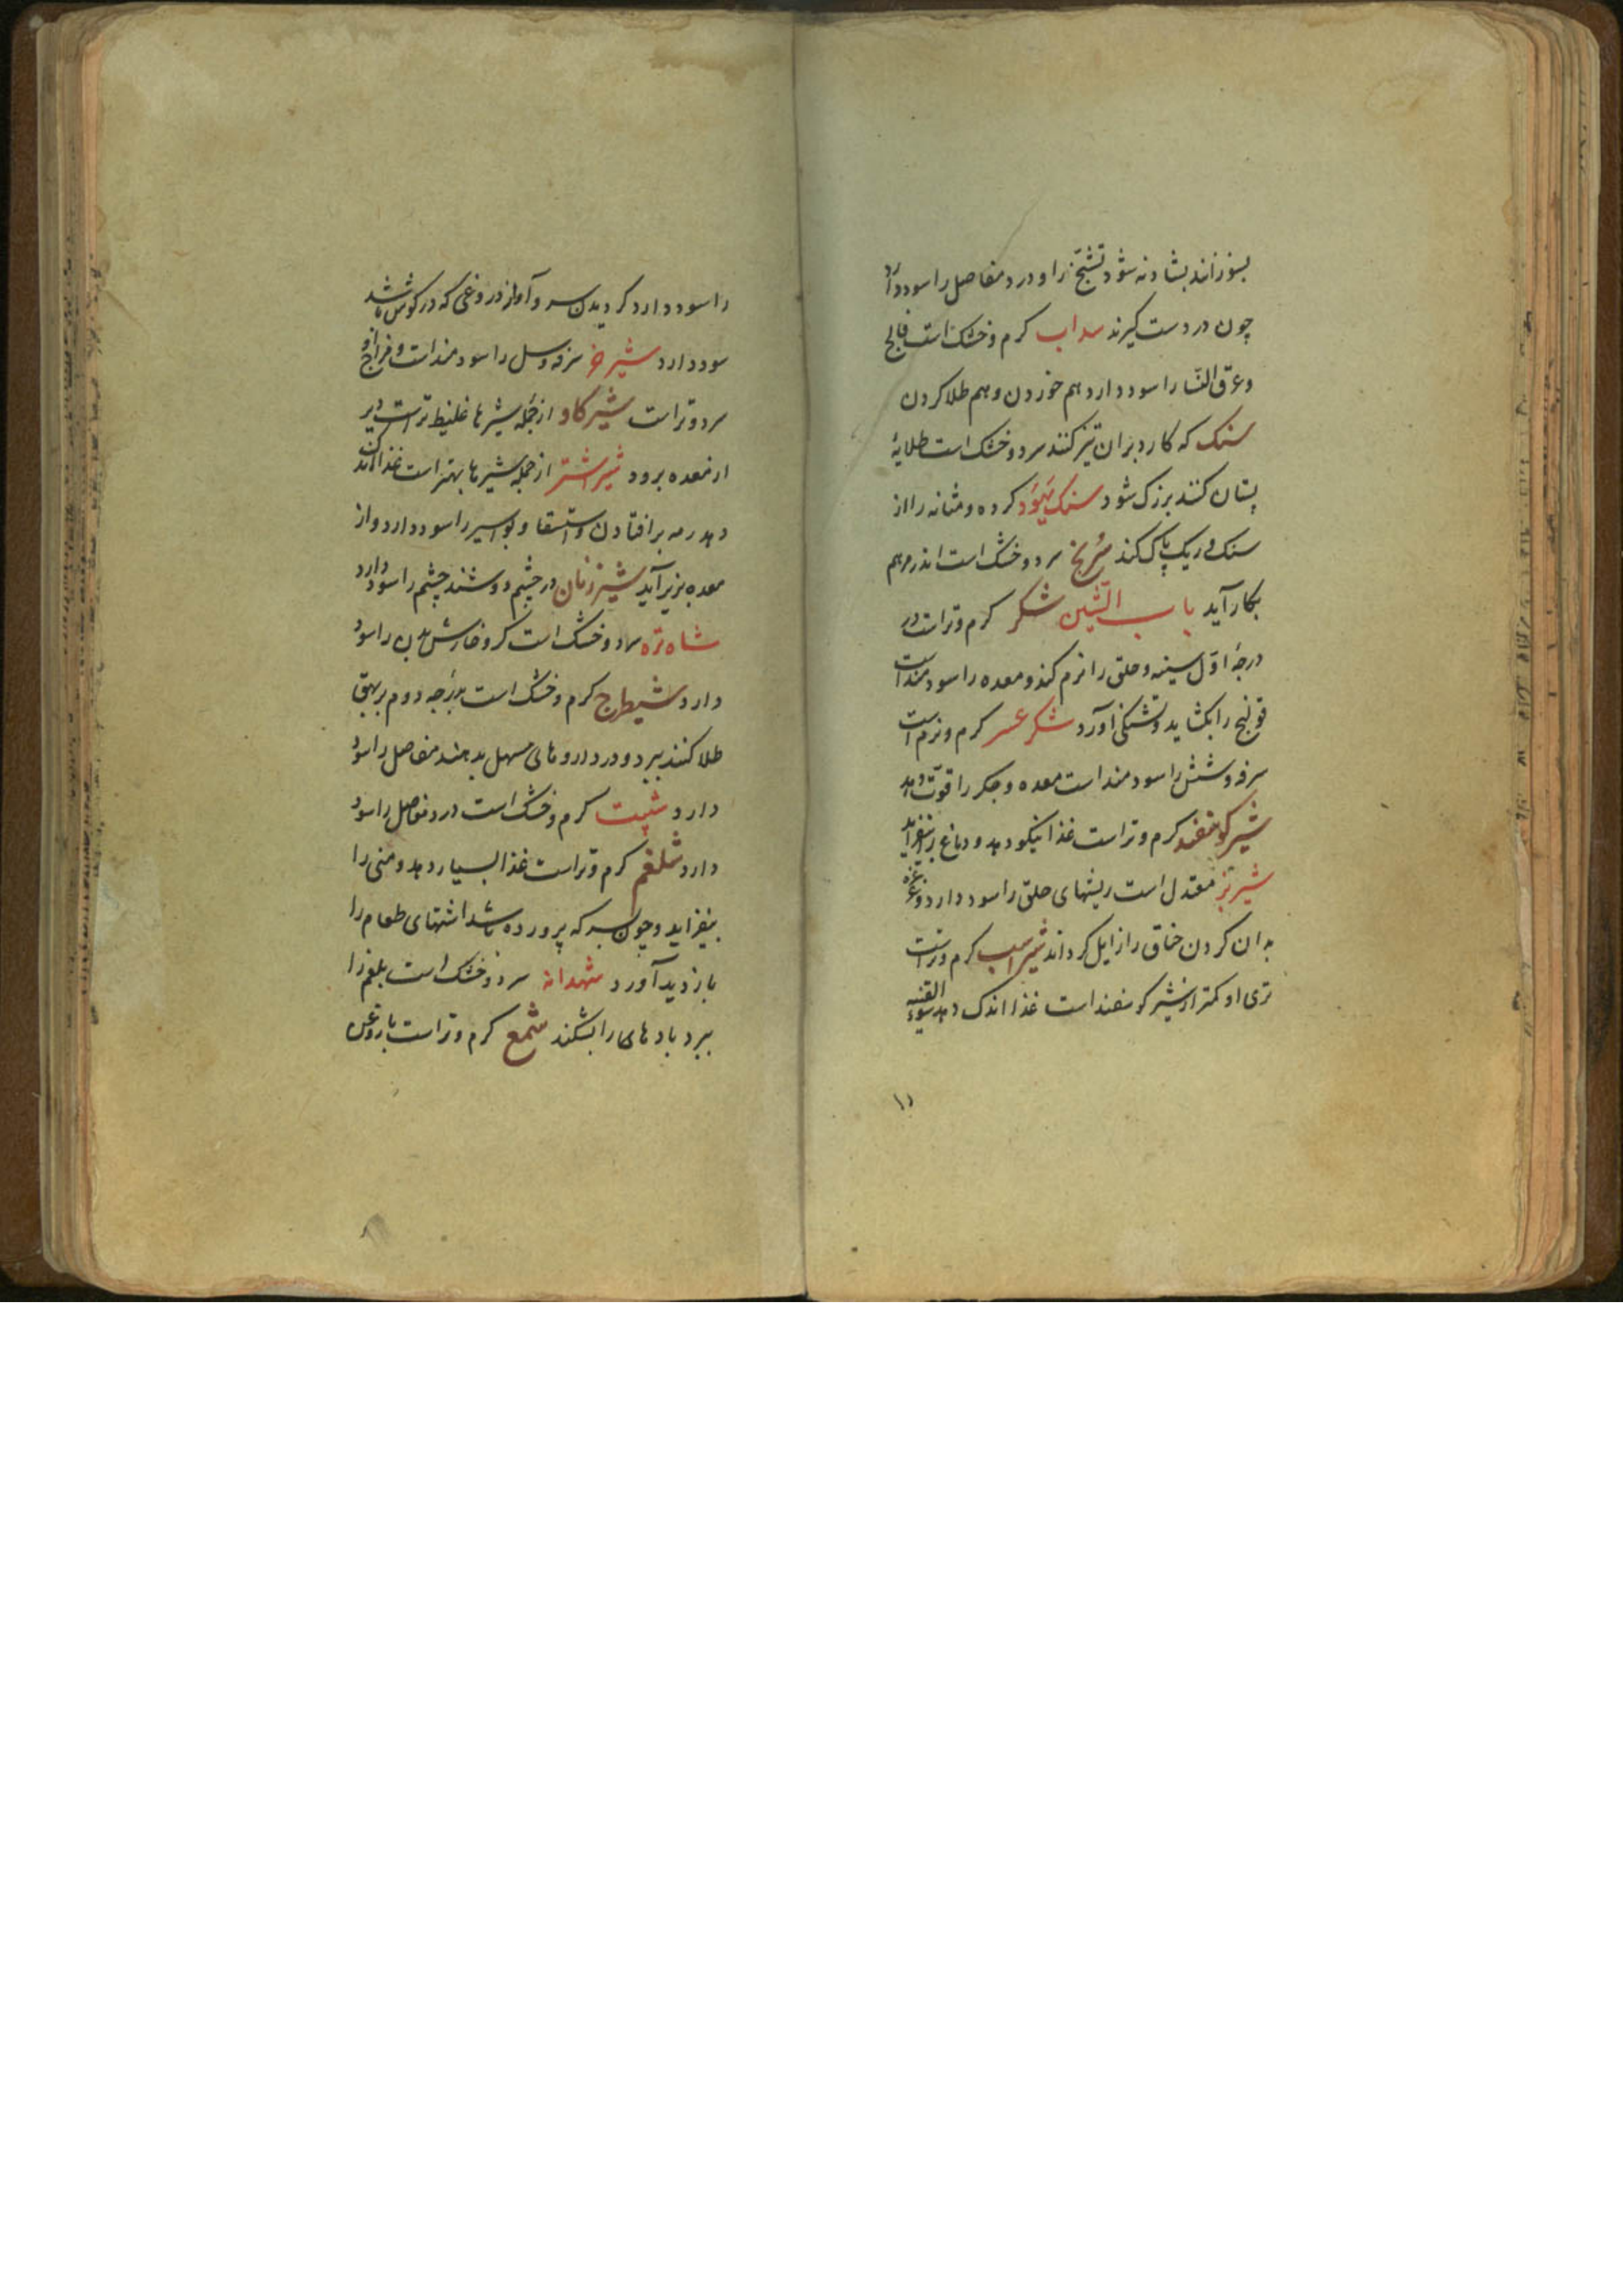 بسوزانند بشادنه شود تشنّج را و درد مفاصل را سود دارد
چون در دست کیرند سداب کرم و خشک است فالج
و عرق النّسا را سود دارد هم خوردن و هم طلا کردن
سنک که کارد بران تیز کنند سرد و خشک است طلایهٔ
پستان کنند بزرک شود سنک یهود کرده و مثانه را از
سنک و ریک پاک کند سُرنج سرد و خشک است اندر مرهم
بکار آید باب الشّین شکر کرم و تر است در
درجهٔ اوّل سینه و حلق را نرم کند و معده را سودمند است
قولنج را بکشاید و تشنکی آورد شکر عسر کرم و نرم است
سرفه و شش را سودمند است معده و جکر را قوّت دهد
شیر کوسفند کرم و تر است غذا نیکو دهد و دماغ را بیفزاید
شیر بز معتدل است ریشهای حلق را سود دارد و غرغره
بدان کردن خناق را زایل کرداند شیر اسب کرم و تر است
تری او کمتر از شیر کوسفند است غذا اندک دهد سوء القنیه
را سود دارد کردیدن سر و آواز دروغی که در کوش باشد
سود دارد شیر خر سرفه و سل را سودمند است و مزاج او
سرد و تر است شیر کاو از جمله شیرها غلیظ تر است و دیر
از معده برود شیر اشتر از جمله شیرها بهتر است غذا اندک
دهد رمه بر افتادن و استسقا و بواسیر را سود دارد و از
معده بزیر آید شیر زنان در چشم دوشند چشم را سود دارد
شاه تره سرد و خشک است کر و خارش بدن را سود
دارد شیطرج کرم و خشک است بدرجه دوم بر بهق
طلا کنند ببرد و در داروهای مسهل بدهند مفاصل را سود
دارد شبت کرم و خشک است درد مفاصل را سود
دارد شلغم کرم و تر است غذا بسیار دهد و منی را
بیفزاید و چون بسرکه پرورده باشد اشتهای طعام را
بازدید آورد شهدانه سرد و خشک است بلغم را
ببرد بادهای را بشکند شمع کرم و تر است با روغن